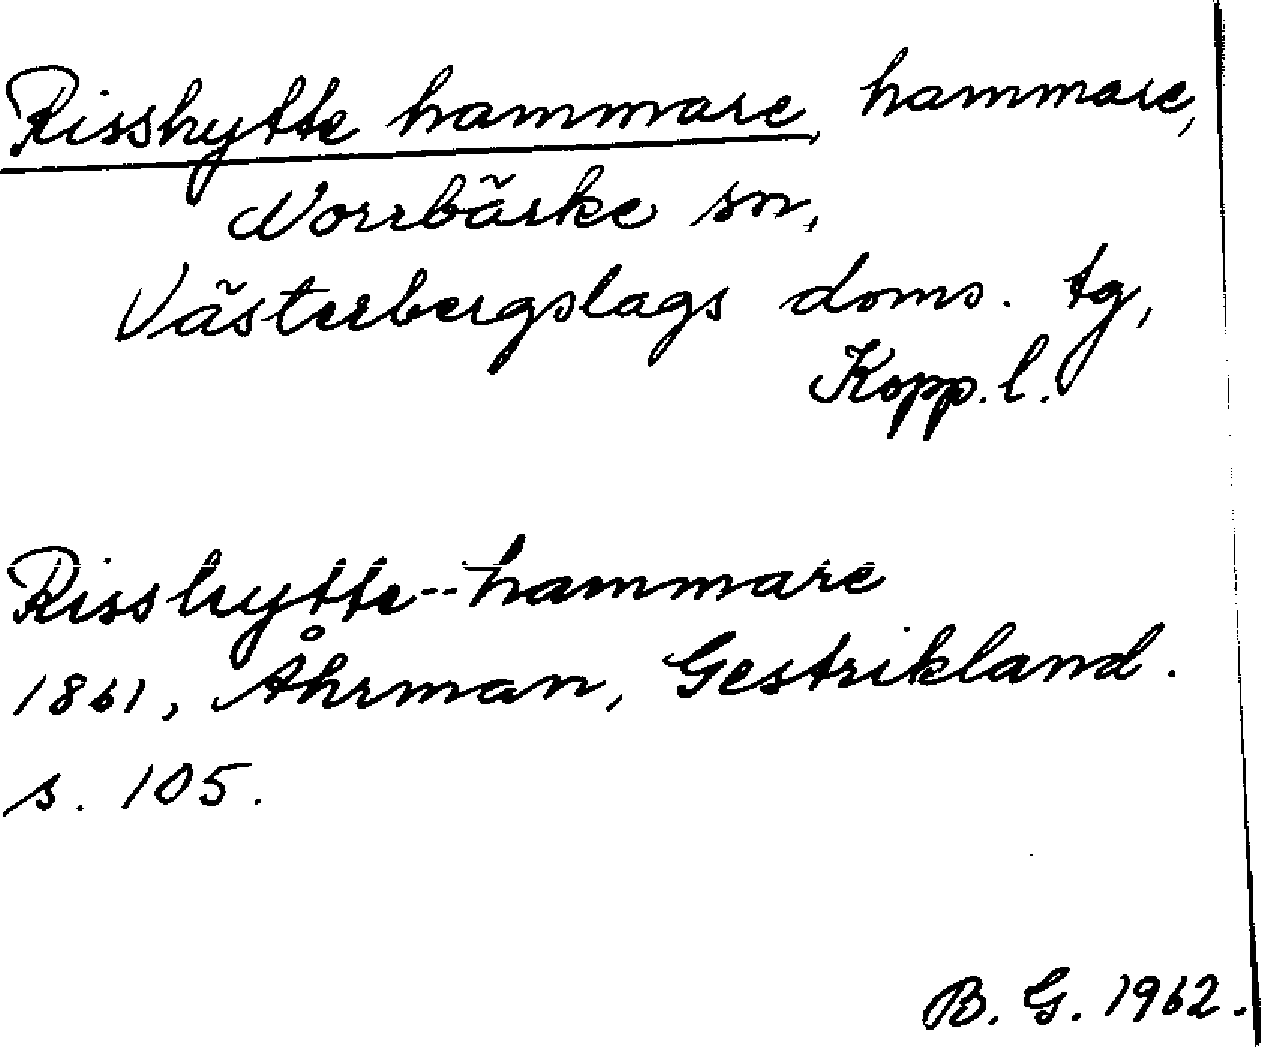 Risshytte hammare, hammare,
Norrbärke sn,
Västerbergslags doms. tg,
Kopp. l.
Risshytte-hammare
1861, Åhrman, Gestrikland.
s. 105.
B. G. 1962.